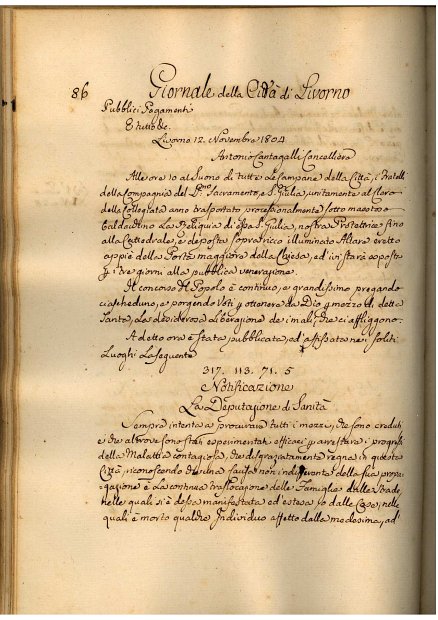 86 Giornale della Città di Livorno
Pubblici Pagamenti
E tutto &c.
Livorno 12. Novembre 1804
Antonio Cantagalli Cancelliere
Alle ore 10 al Suono di tutte le Campane della Città, i Fratelli
della Compagnia del S.mo Sacramento, e S. Giulia, unitamente al Clero
della Collegiata anno trasportato processionalmente sotto maestoso
Baldacchino La Reliquia di essa S. Giulia, nostra Protettrice fino
alla Cattedrale, e deposta sopra ricco illuminato Altare eretto
appiè della Porta maggiore della Chiesa, ed ivi starà esposta
p i tre giorni alla pubblica venerazione.
Il concorso del Popolo è continuo, e grandissimo pregando
ciascheduno, e porgendo Voti p ottenere da Dio p mezzo della
Santa, la desiderosa liberazione de i mali, che ci affliggono.
A detto ora è stata pubblicata, ed affissata nei soliti
Luoghi La seguente
317. 113. 71. 5
Notificazione
La Deputazione di Sanità
Sempre intenta a procurare tutti i mezzi, che sono creduti
e che altrove sono stati esperimentati efficaci p arrestare i progressi
della Malattia contagiosa, che disgraziatamente regna in questa
Città, riconoscendo che una causa non indifferente della sua propa-
gazione è La continua traslocazione delle Famiglie dalle Strade,
nelle quali si è essa manifestata ed estesa, o dalle Case, nelle
quali è morto qualche Individuo affetto dalla medesima, ad